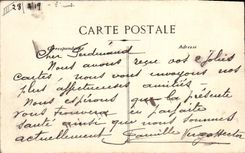 28 
CARTE POSTALE
Correspondance Adresse
Cher Ferdinand
Nous avons reçu vos jolies
cartes, nous vous envoyons nos
plus affectueuses amitiés
Nous espérons que la présente
vous trouvera en parfaite
santé ainsi que nous sommes
actuellement Famille